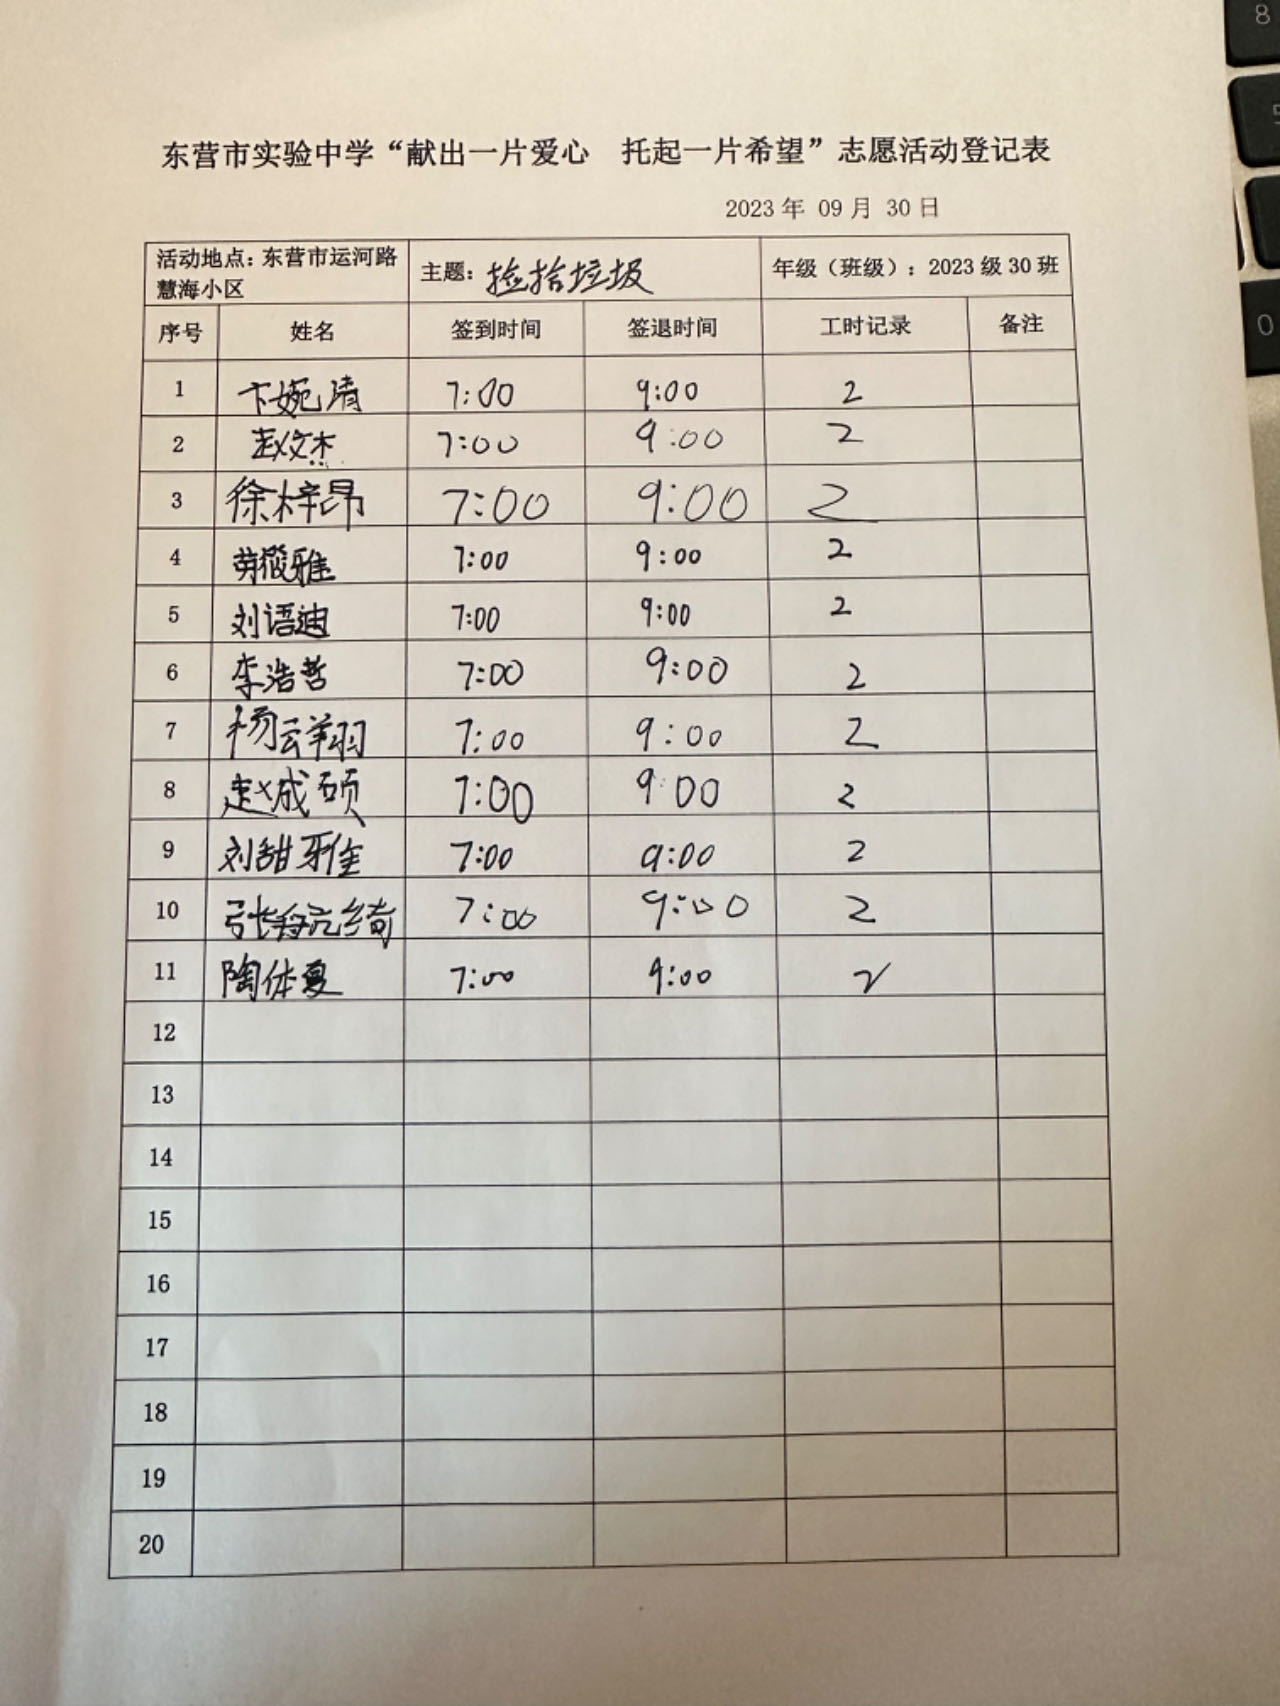 东营市实验中学“献出一片爱心 托起一片希望”志愿活动登记表
2023 年 09 月 30 日
活动地点：东营市运河路慧海小区 主题：捡拾垃圾 年级（班级）：2023 级 30 班
序号 姓名 签到时间 签退时间 工时记录 备注
1 卞婉清 7:00 9:00 2
2 赵文杰 7:00 9:00 2
3 徐梓昂 7:00 9:00 2
4 雅 7:00 9:00 2
5 刘语迪 7:00 9:00 2
6 李浩哲 7:00 9:00 2
7 杨云翔 7:00 9:00 2
8 赵成硕 7:00 9:00 2
9 刘甜雅 7:00 9:00 2
10 张 绮 7:00 9:00 2
11 陶体夏 7:00 9:00 2
12
13
14
15
16
17
18
19
20
8
0